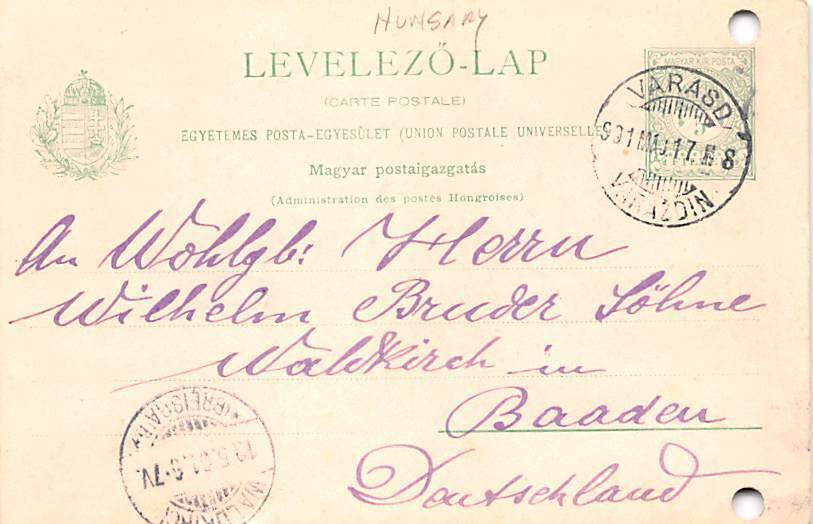 HUNGARY
LEVELEZŐ-LAP
(CARTE POSTALE)
EGYETEMES POSTA-EGYESÜLET (UNION POSTALE UNIVERSELLE
Magyar postaigazgatás
(Administration des postes Hongroises)
MAGYAR KIR. POSTA
5
VARASD
901 MÁJ 17
8
VARAŽDIN
An Wohlgb: Herrn
Wilhelm Bruder Söhne
Waldkirch in
Baaden
Deutschland
(BREISGAU)